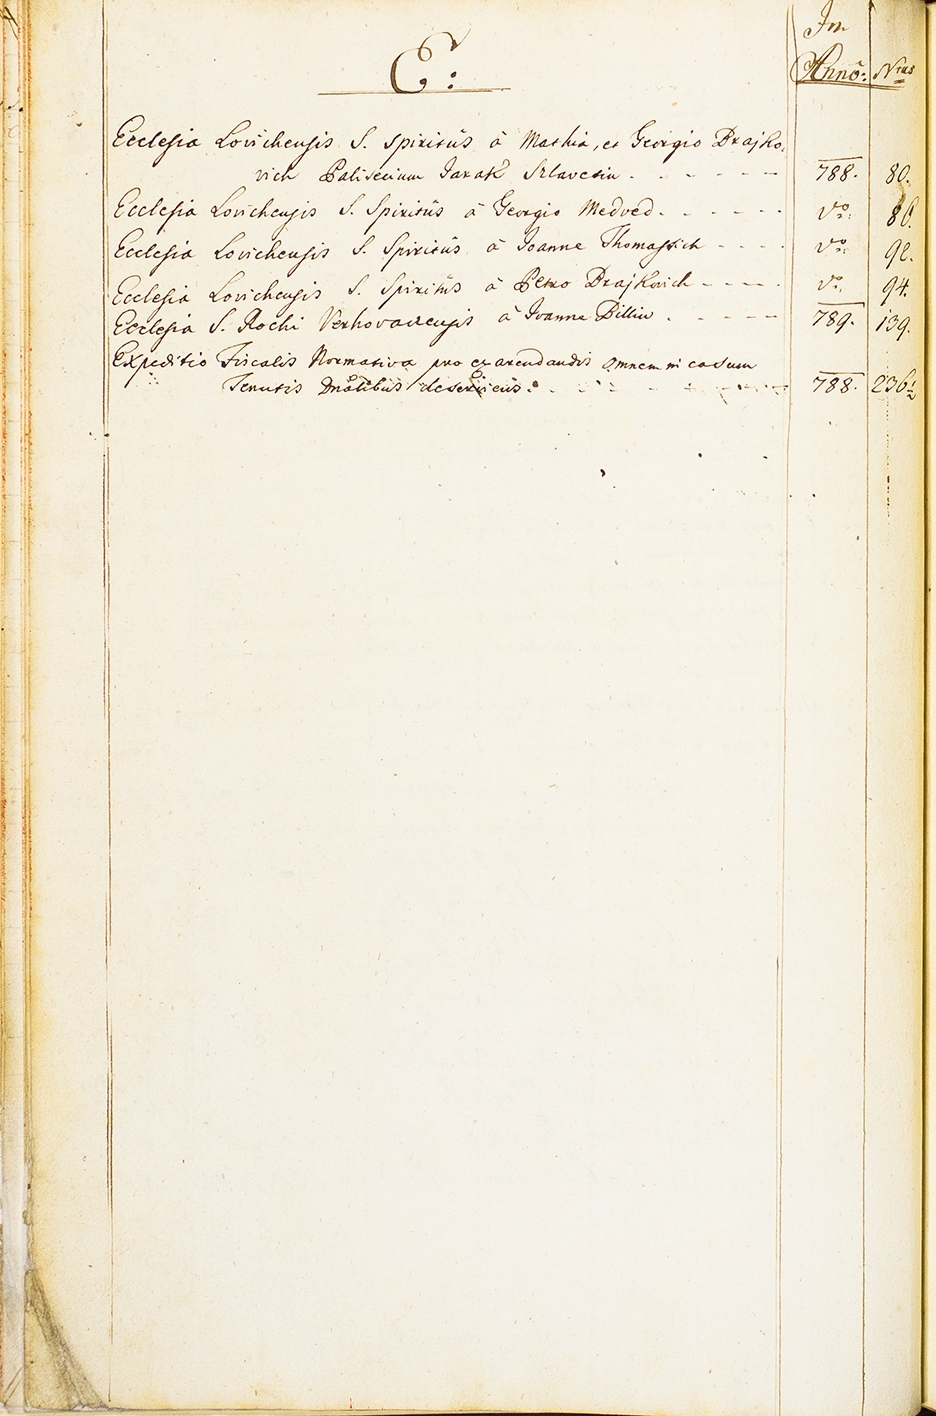 E:
In
Anno: Nrus
Ecclesia Lovichensis S. Spiritûs à Mathia, et Georgio Drajko,
vich Jarak 788. 80.
Ecclesia Lovichensis S. Spiritûs à Georgio Medved. do. 86.
Ecclesia Lovichensis S. Spiritûs à Joanne Thomassich do. 92.
Ecclesia Lovichensis S. Spiritûs à Petro Drajkovich do. 94.
Ecclesia S. Rochi Verhovacensis à Ivanne Billin 789. 139.
Expeditio Fiscalis Normativa pro exarendandis omnem in casum
Tenutis 788. 236½